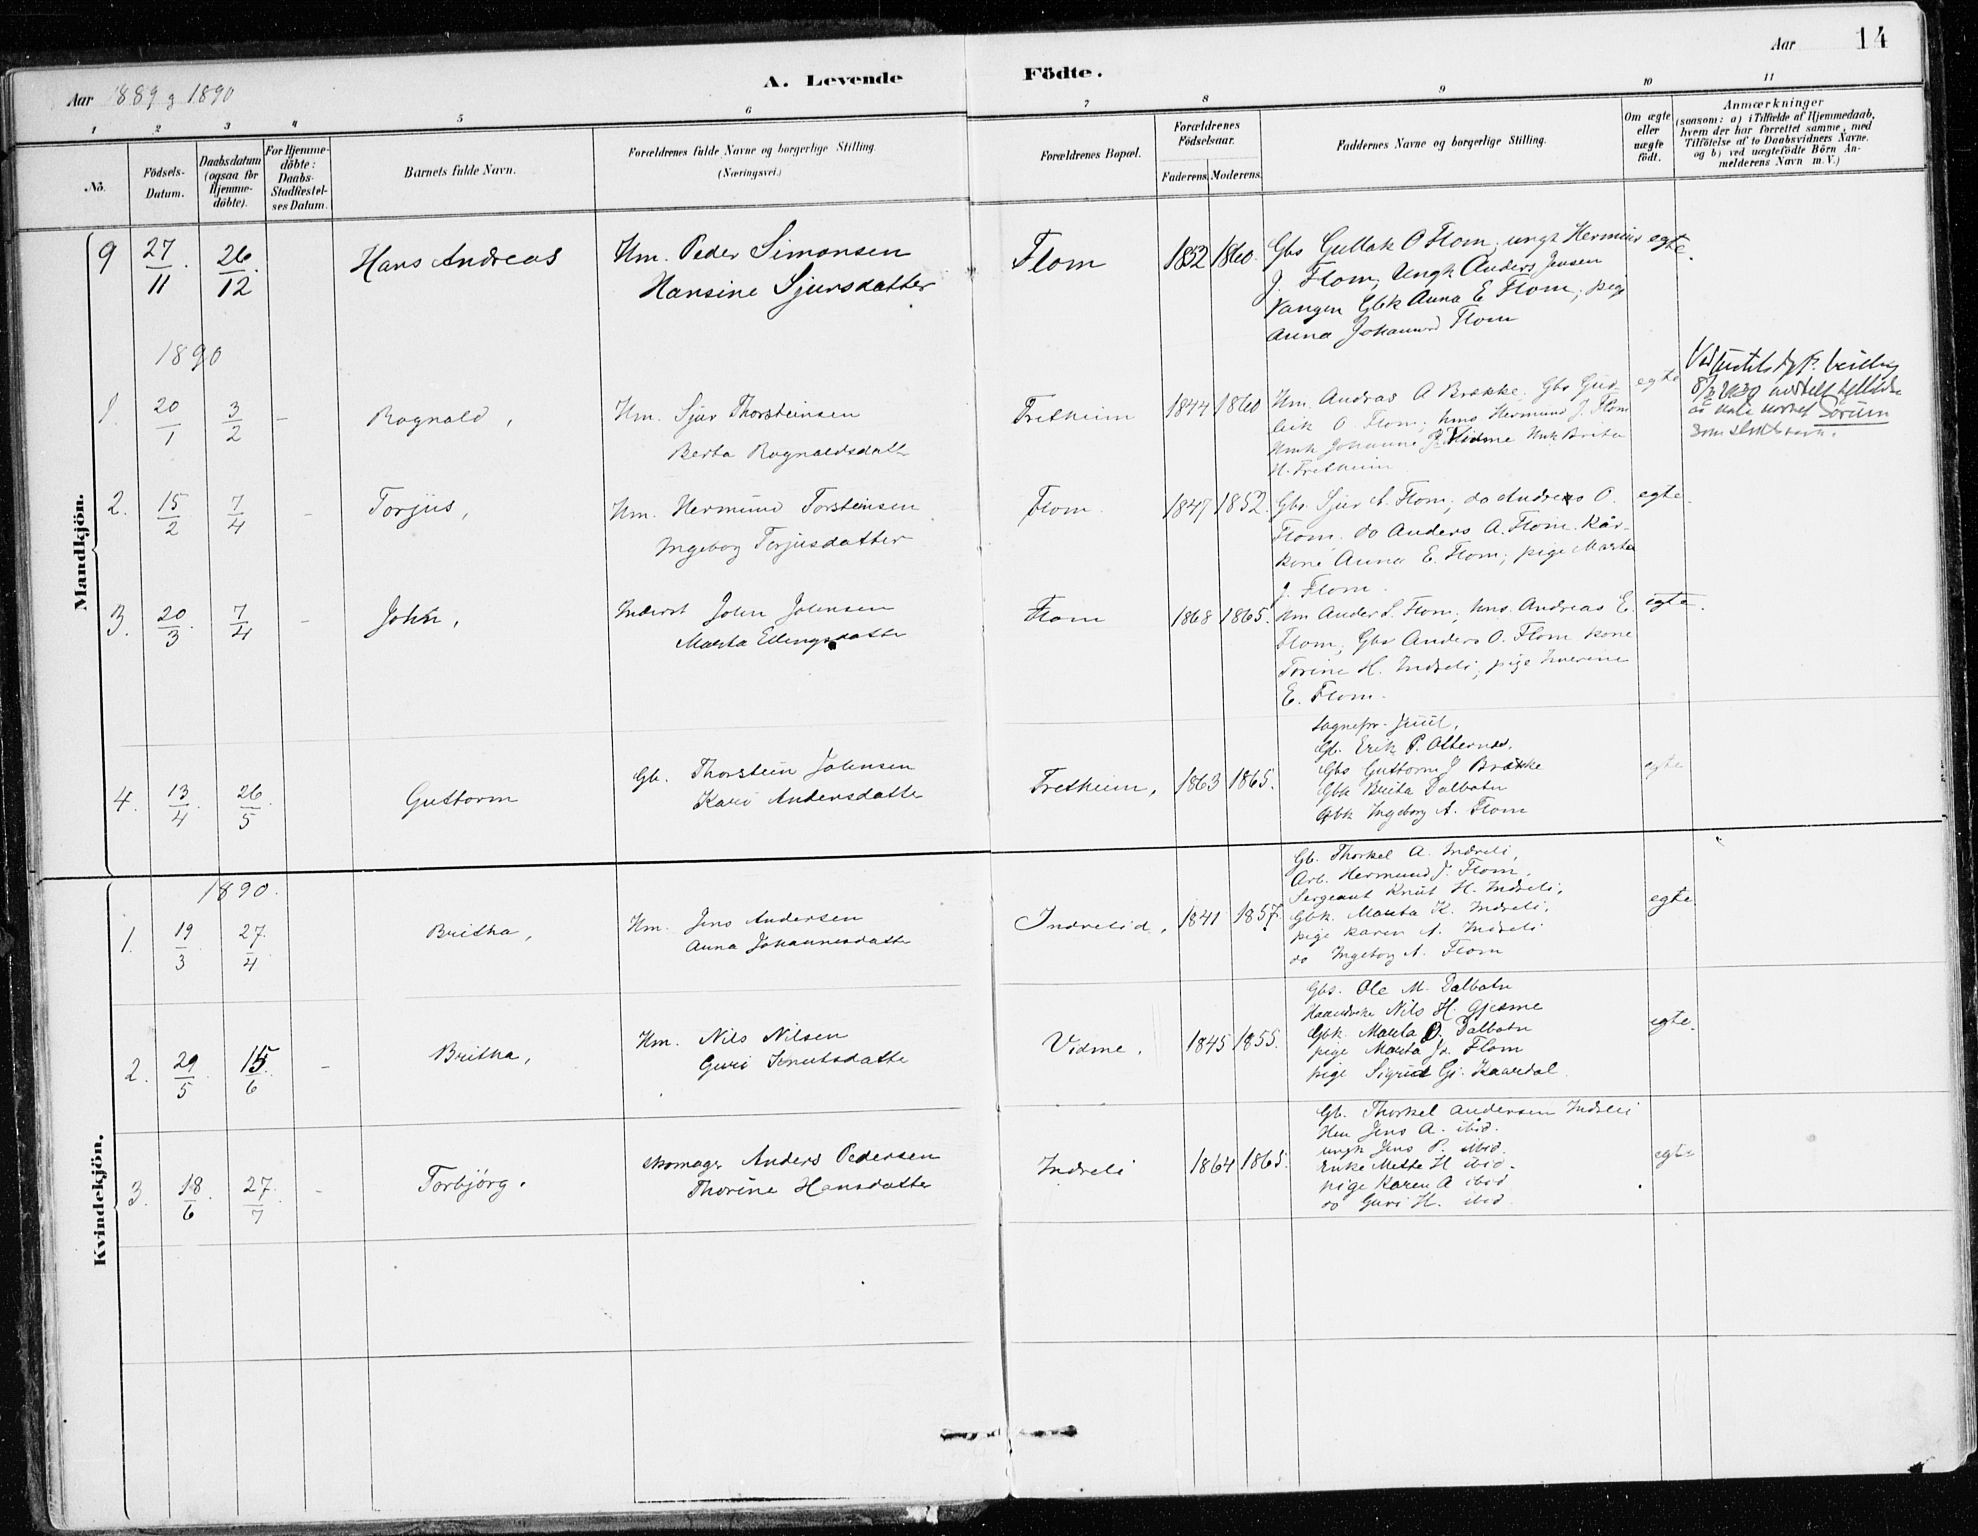 Aar 1889 g 1890
A. Levende Födte.
Aar 14
1 2 3 4 5 6 7 8 9 10 11
No.
Födsels-
Datum.
Daabsdatum
(ogsaa for
Hjemme-
döbte).
For Hjemme-
döbte:
Daabs-
Stadfæstel-
ses Datum.
Barnets fulde Navn.
Forældrenes fulde Navne og borgerlige Stilling.
(Næringsvei.)
Forældrenes Bopæl.
Forældrenes
Födselsaar.
Faderens. Moderens.
Faddernes Navne og borgerlige Stilling.
Om ægte
eller
uægte
födt.
Anmærkninger
(saasom: a) i Tilfælde af Hjemmedaab,
hvem der har forrettet samme, med
Tilföielse af to Daabsvidners Navne,
og b) ved uægtefödte Börn An-
melderens Navn m. V.)
Mandkjön.
9 27/11. 26/12. Hans Andreas
Hm. Peder Simonsen
Hansine Sjursdatter
Flom 1852 1860.
Gbs Gullak O Flom; ungk Hermund
J. Flom; Ungk Anders Jensen
Vangen Gbk Anna E Flom; pige
Anna Johannesd Flom
egte.
1890
1. 20/1 3/2 - Ragnald,
Hm. Sjur Thorsteinsen
Berta Ragnaldsdatt
Fretheim 1844 1860
Hm. Andras A Brække. Gbs Gud-
leik O. Flom; hms Hermund J. Flom
Hmk Johanne P. Vidme Hmk Brita
H. Fretheim
egte
Sorum
som slektsnavn.
2. 15/2 7/4 - Torjus,
Hm. Hermund Torsteinsen
Ingebog Torjusdatter
Flom. 1847 1852.
Gbs Sjur A. Flom; do Andreas O.
Flom. do Anders A. Flom. Kår-
kone Anna E. Flom; pige Marta
J. Flom.
egte.
3. 20/3. 7/4 - John,
Inderst John Johnsen
Marta Ellingsdatte
Flom 1868 1865.
Hm Ander S. Flom; hms. Andreas E.
Flom; Gbs Anders O. Flom kone
Torine H. Indreli; pige
E. Flom.
egte.
4. 13/4. 26/5. Guttorm
Gb. Thorstein Johnsen
Kari Andersdatte
Fretheim, 1863 1865.
Sognepr. Juul,
Gb. Erik P. Otternes,
Gbs Guttorm J Brække
Gbk Brita Dalbotn
Gbk Ingeborg A. Flom
egte
Kvindekjön.
1890.
1. 19/3 27/4 Britha,
Hm. Jens Andersen
Anna Johannesdatte
Indrelid, 1841 1857.
Gb. Thorkel A. Indreli,
Arb. Hermund J. Flom,
Sergeant Knut H. Indreli,
Gbk. Marta K. Indreli,
pige Karen A. Indreli
do Ingeborg A. Flom
egte
2. 29/5. 15/6 - Britha,
Hm. Nils Nilsen
Guri Knutsdatte
Vidme. 1845 1855.
Gbs. Ole M. Dalbotn
Nils H. Gjesme
Gbk. Marta O. Dalbotn
pige Marta Jd. Flom
pige Sigrid Gj. Kaardal.
egte.
3. 18/6. 27/7. - Torbjörg.
skomager Anders Pedersen
Thorine Hansdatte
Indreli 1864 1865.
Gb. Thorkel Andersen Indreli
Hm Jens A. ibid.
ungk Jens P. ibid.
Enke Mette H ibid.
pige Karen A ibid
do Guri H. ibid.
egte